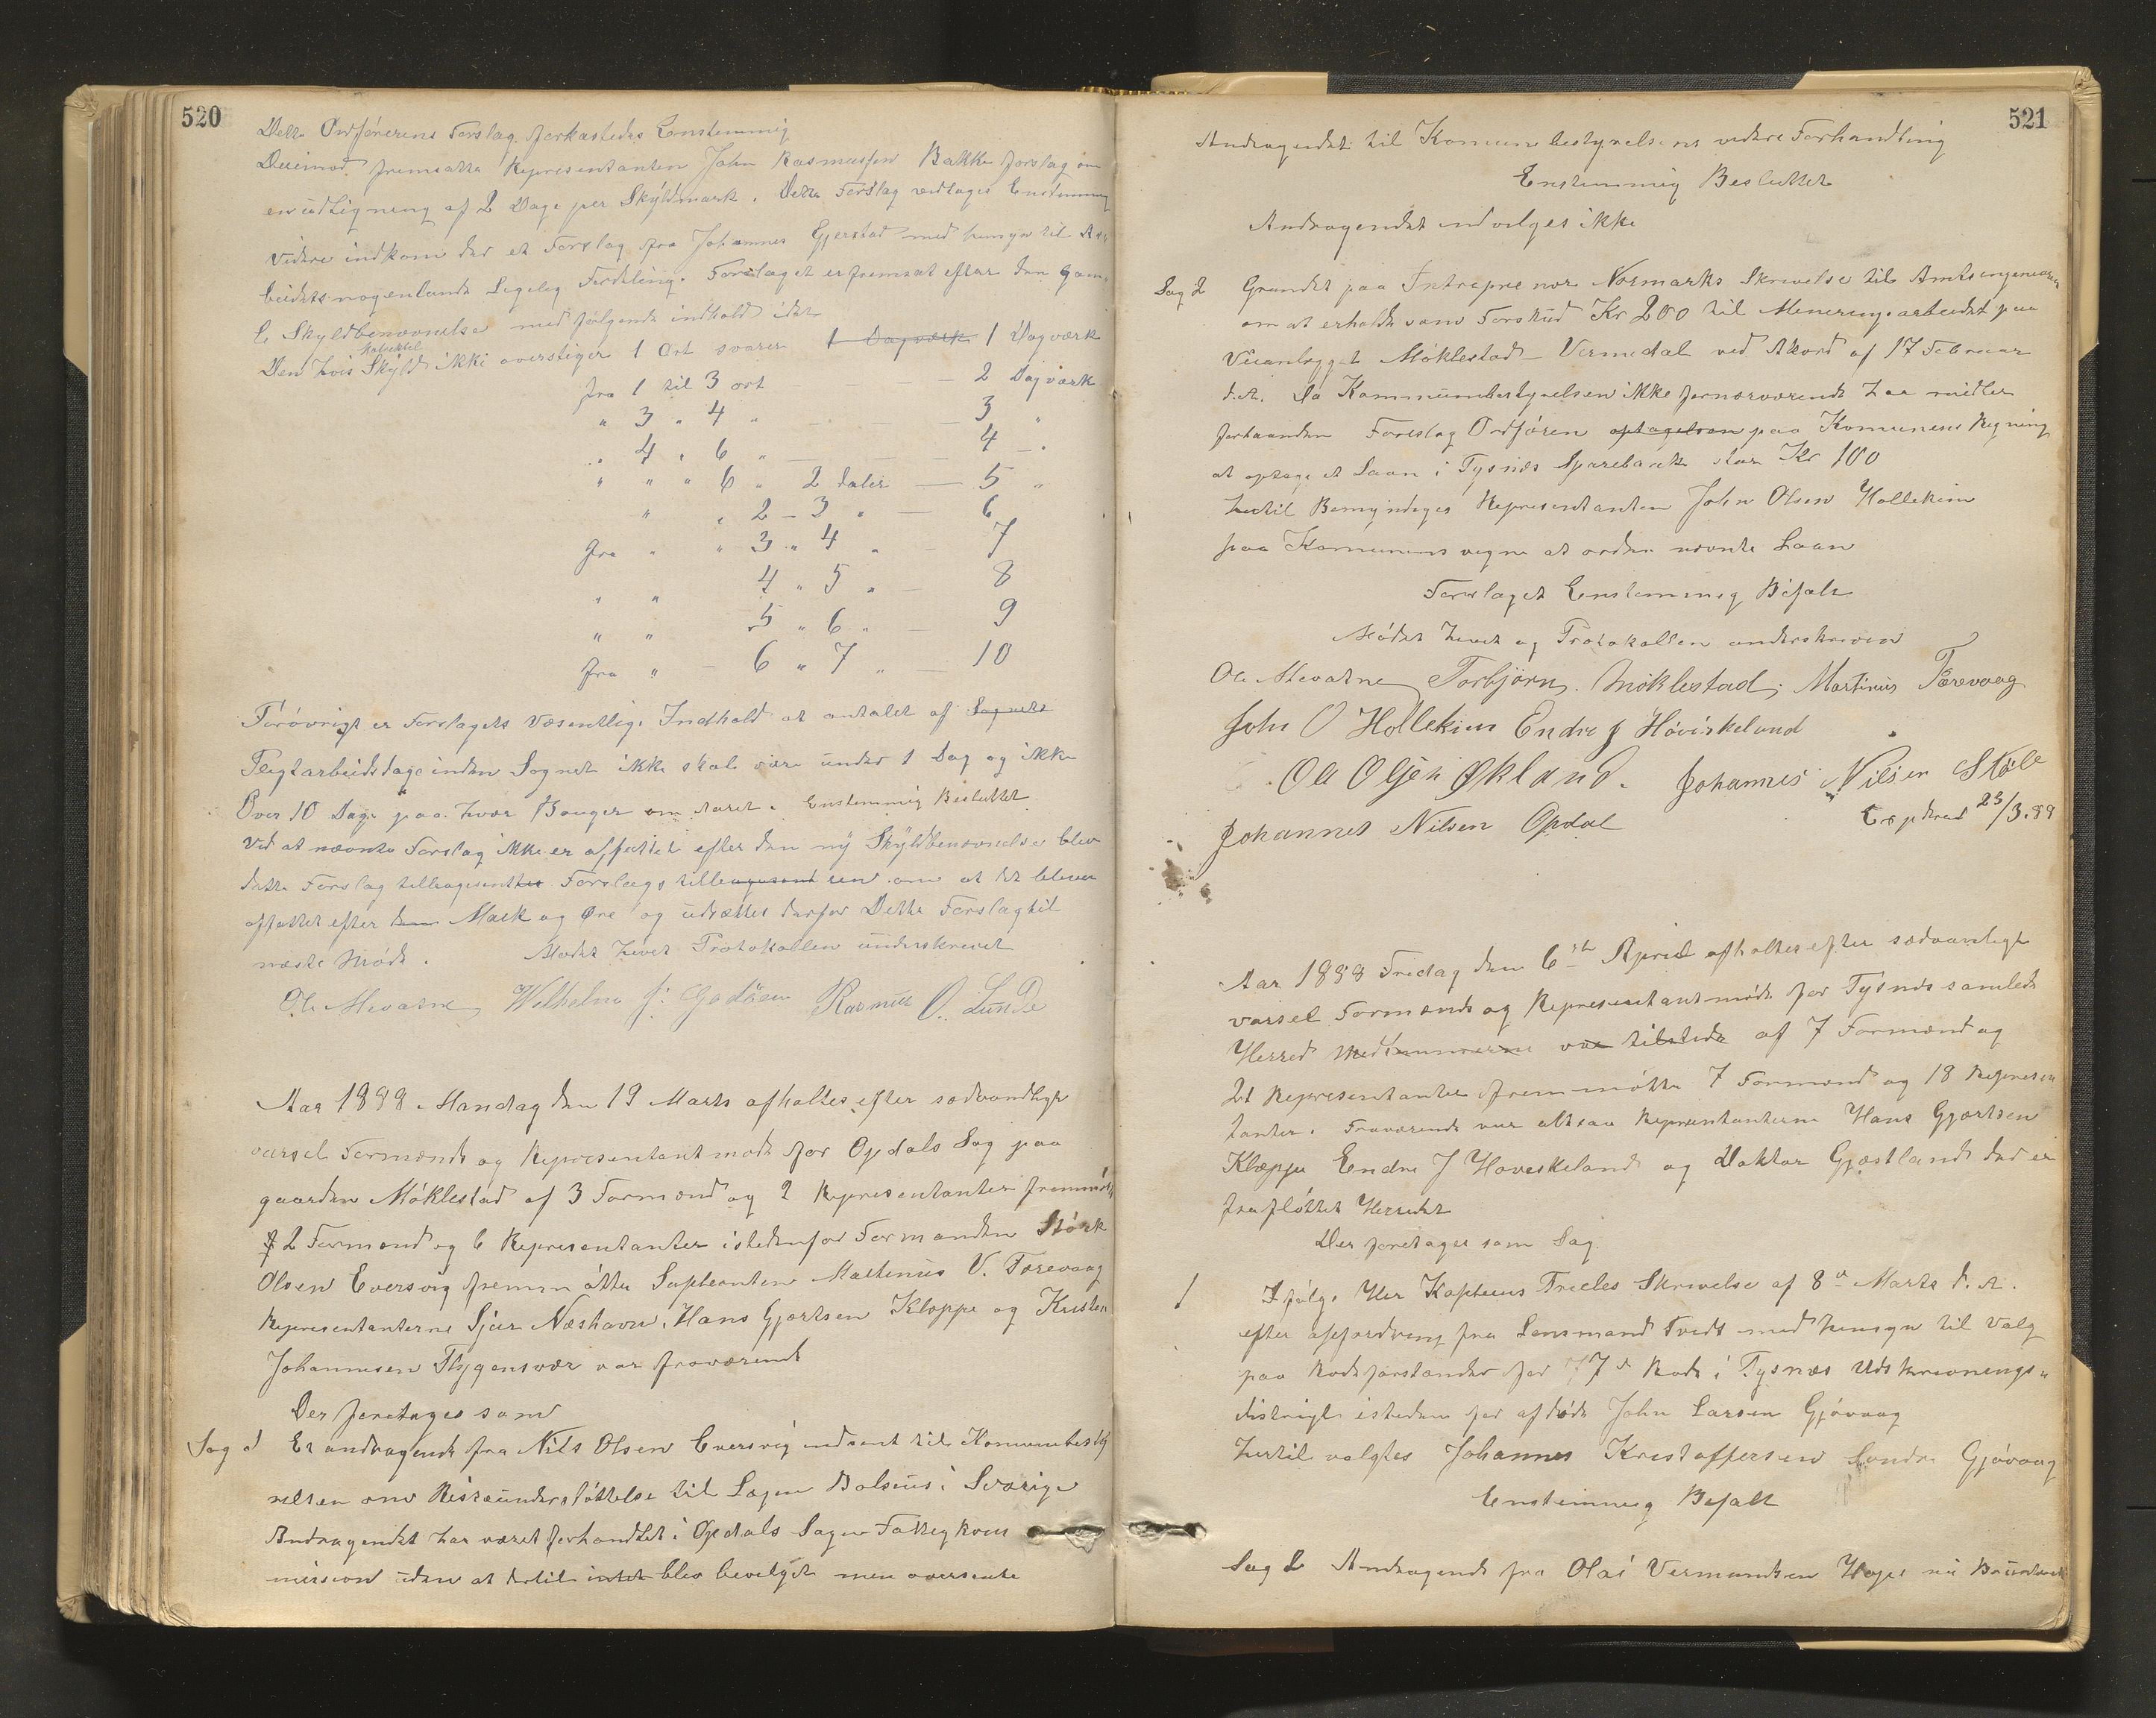 520
Dette Ordførerens Forslag forkastedes Enstemmig
Deimod fremsatte Representanten John Rasmussen Bakke forslag om
en udligning af 2 Dage per Skyldmark. Dette Forslag vedtoges Enstemmig
Videre indkom der et Forslag fra Johannes Gjerstad med hensyn til Ar
beidets nogenlunde Ligelig Fordeling. Forslaget er fremsat efter den gam
le Skyldbenævnelse med følgende indhold
Matrikkel
Den hvis Skyld ikke overstiger 1 Ort svarer 1 Dagværk 1 Dagværk
fra 1 til 3 ort — — — 2 Dagværk
" 3 " 4 " — — — 3 "
" 4 " 6 " — — — 4 — "
" " " 6 " 2 daler — 5 "
" " 2 – 3 " — 6
fra " " 3 " 4 " — 7
" " 4 " 5 " — 8
" " 5 " 6 " — 9
fra " — 6 " 7 " — 10
Forøvrigt er Forslagets Væsentlige Indhold at antalet af Sognets
Pligtarbeidsdage inden Sognet ikke skal være under 1 Dag og ikke
Over 10 Dage paa hvær Bruger om Aaret. Enstemmig Besluttet
Ved at nævnte Forslag ikke er affattet efter den ny Skyldbenævnelse blev
dette Forslag Forslags om at det bliver
affattet efter den Mark og Øre og udsættes derfor Dette Forslag til
næste Møde. Mødet hevet Protokollen underskrevet
Ole Mevatne Wilhelm J. Godøsen Rasmus O. Lunde
Aar 1888. Mandag den 19 Marts afholtes efter sædvandlige
varsel Formands og Representantmøde for Opdals Sog paa
gaarden Møklestad af 3 Formænd og 9 Representanter fremmøtte
2 Formænd og 6 Representanter istedenfor Formanden Størk
Olsen Eversvig fremmøtte Supleanten Martinus V. Tørevaag
Representanterne Sjur Næshavn, Hans Gjørtsen Kloppe og Kristen
Johannesen Flygensvær var fraværende
Der foretages som
Sag 1 Et andragende fra Nils Olsen Eversvig indsent til Komunebesty
relsen om Reiseunderstøttelse til Lægen Bolsius i Sverige
Andragendet har været forhandlet i Opdals Sogns Fattigkom
mission uden at dertil intet blev bevilget men oversente
521
Andragendet til Komunebestyrelsens videre Forhandling
Enstemmig Besluttet
Andragendet indvilges ikke
Sag 2 Grundet paa Intreprenør Normarks Skrivelse til Amtsingeniøren
om at erholde som Forskud Kr 200 til Mineringsarbeidet paa
Veianlægget Møklestad – Vermedal ved Akord af 17 Februar
d.A. Da Kommunebestyrelsen ikke fornærværende har midler
forhaanden Foreslog Ordføren optagelsen paa Komunens Regning
at optage et Laan i Tysnes Sparebank stor Kr 100
Hertil Bemyndiges Representanten John Olsen Hollekim
paa Komunens vegne at ordne nævnte Laan
Forslaget Enstemmig Bifalt
Mødet hevet og Protokollen underskreven
Ole Mevatne Torbjørn Møklestad. Martinus Tørevaag
John O Hollekim Endre J Høviskeland
Ole Olsen Økland. Johannes Nilsen Støle
Johannes Nilsen Opdal Expederet 23/3.88
Aar 1888 Fredag den 6te April afholtes efter sædvanlige
varsel Formænds og Representantmøde for Tysnes samlede
Herred Medlemmerne var tilstede af 7 Formænd og
21 Representanter fremmøtte 7 Formænd og 18 Represen
tanter. Fraværende var altsaa Representanterne Hans Gjørtsen
Kloppe Endre J Høveskeland og Doktor Gjæstland der er
fraflöttet Herredet
Der foretages som Sag
1 Ifølge Her Kapteins Skrivelse af 8de Marts d.A.
efter opfordring fra Lensmand Tvedt med hensyn til Valg
paa Rodeforstander for 7de Rode i Tysnæs Udskrivnings-
distrigt isteden for afdøde John Larsen Gjøvaag
Hertil valgtes Johannes Kristoffersen Søndre Gjøvaag
Enstemmig Bifalt
Sag 2 Andragende fra Olai Vermundsen Hope